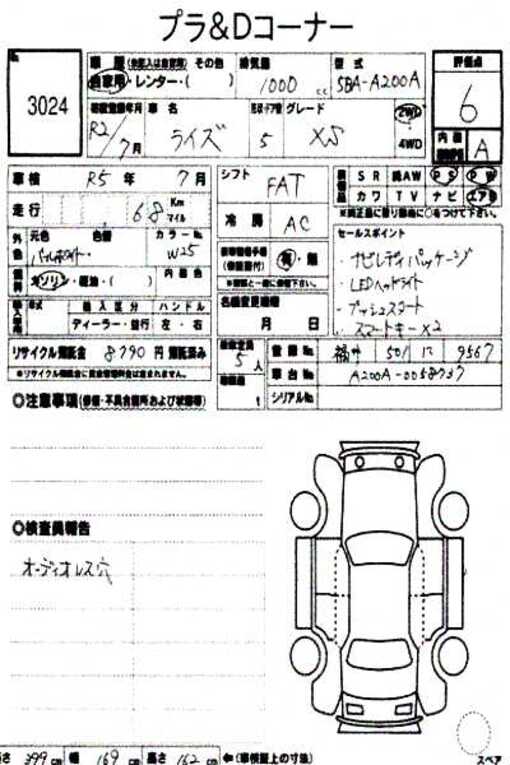 プラ&Dコーナー
No.
3024
車歴 (自家用以外は記入) その他 排気量 型式 評価点
自家用・レンター・( ) 1000 cc 5BA-A200A 6
初度登録年月 車名 ドア数 グレード 2WD 内装
R2/7月 ライズ 5 XS 4WD A
車検 R5年 7月 シフト FAT SR 純AW PS PW
走行 68 Km マイル 冷房 AC カワ TV ナビ エアB
外色 元色 色替 カラーNo. セールスポイント
パールホワイト・ W25 有・無 ・ナビレディパッケージ
燃料 ガソリン・軽油・( ) 内装色 ・LEDヘッドライト
輸入車 年式 輸入区分 ハンドル 名義変更期限 ・プッシュスタート
ディーラー・並行 左・右 月 日 ・スマートキー×2
リサイクル預託金 8790 円 預託済み 乗車定員 5人 登録No. 501 9567
※リサイクル預託金に資金管理料金は含まれません。 車台No. A200A-0058737
t シリアルNo.
◎注意事項
◎検査員報告
オーディオレス穴
長さ 399 cm 幅 169 cm 高さ 162 cm ←(車検証上の寸法)
スペア